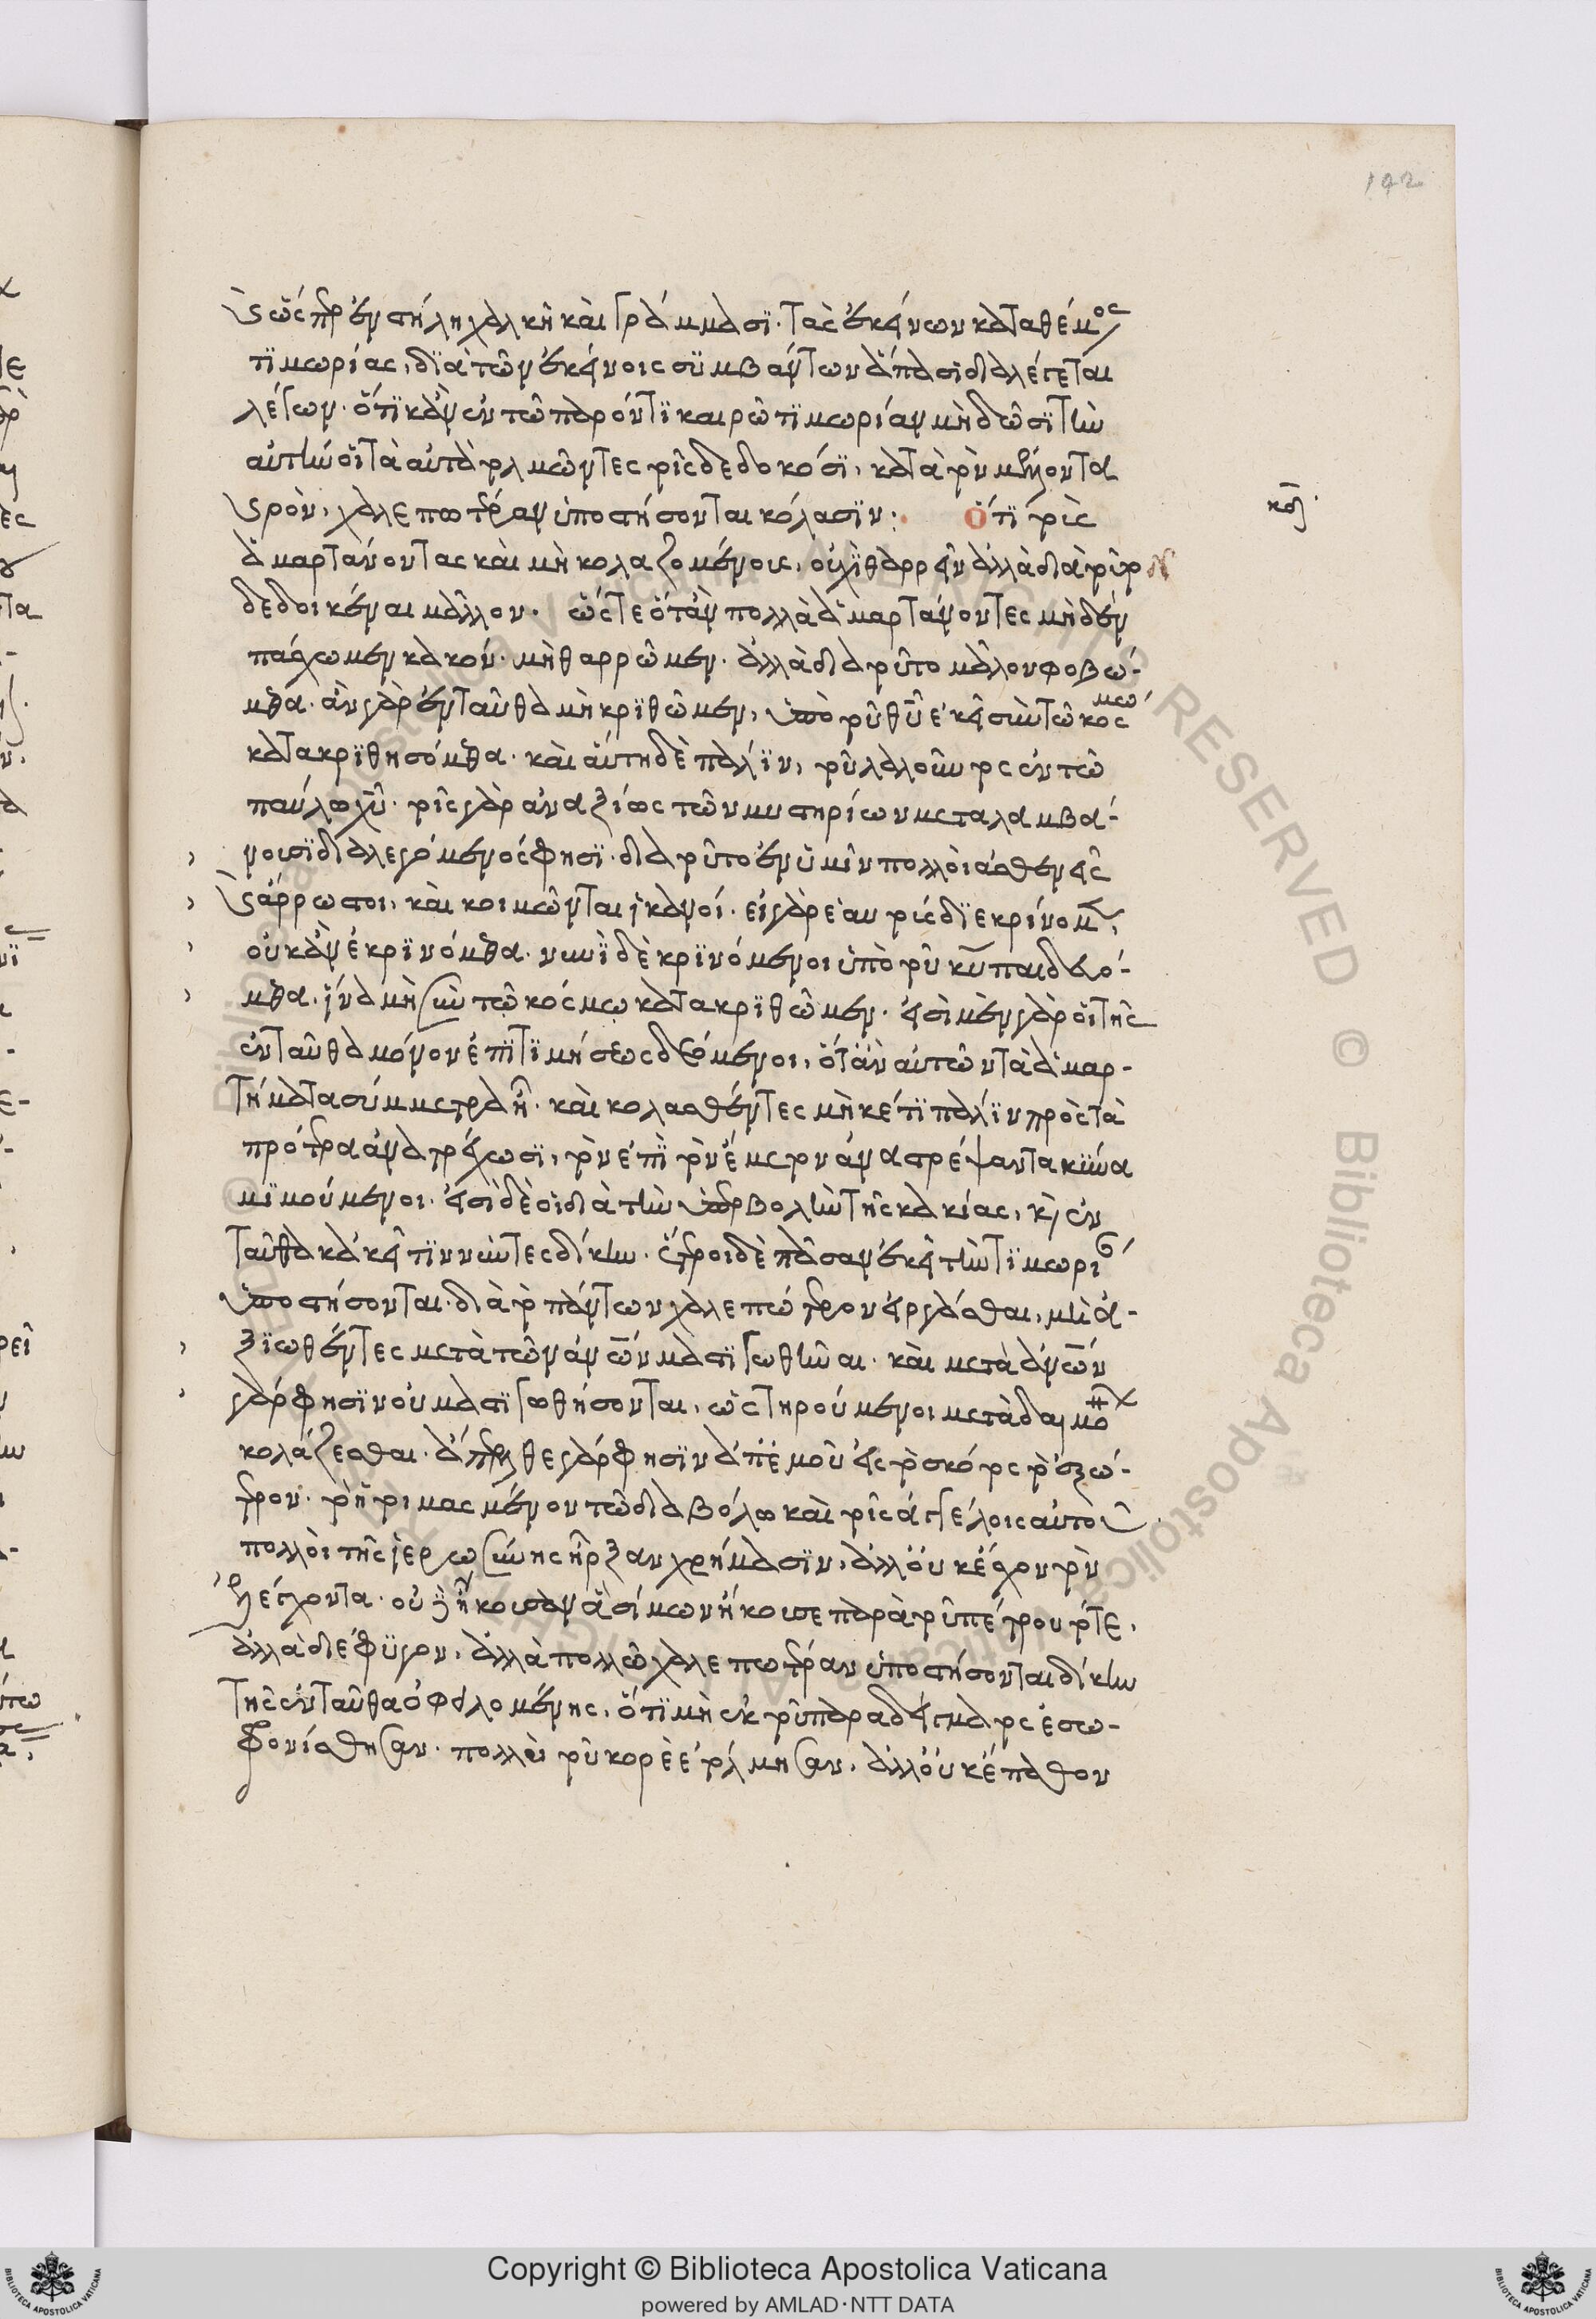 192
καὶ ὥσπερ ἐν στήλη χαλκῆ καὶ γράμμασι. τὰς ἐκείνων καταθέμενος
τιμωρίας, διὰ τῶν ἐκείνοις συμβάντων ἅπασι διαλέγεται
λέγων. ὅτι κἂν ἐν τῶ παρόντι καιρῶ τιμωρίαν μὴ δῶσι τὴν
αὐτὴν οἱ τὰ αὐτὰ τολμῶντες τοῖς δεδοκόσι, κατὰ τὸν μέλλοντα
καιρὸν, χαλεπωτέραν ὑποστήσονται κόλασιν: Ὅτι τοὺς
κολ
ἁμαρτάνοντας καὶ μὴ κολαζομένους, οὐχὶ θαρρεῖν ἀλλὰ διὰ τοῦτο
δεδοικέναι μᾶλλον. ὥστε ὅταν πολλὰ ἁμαρτάνοντες μηδὲν
πάσχωμεν κακόν. μὴ θαρρῶμεν. ἀλλὰ διὰ τοῦτο μᾶλλον φοβώ-
μεθα. ἂν γὰρ ἐνταῦθα μὴ κριθῶμεν, ὑπὸ τοῦ θυ ἐκεῖ σὺν τῶ κόσμω
κατακριθησόμεθα. καὶ αὕτη δὲ πάλιν, τοῦ λαλοῦντος ἐν τῶ
παύλω χυ. τοῖς γὰρ ἀναξίως τῶν μυστηρίων μεταλαμβά-
νουσι διαλεγόμενος φησι. διὰ τοῦτο ἐν ὑμῖν πολλοὶ ἀσθενεῖς
καὶ ἄρρωστοι, καὶ κοιμῶνται ἱκανοί. εἰ γὰρ ἑαυτοὺς διεκρίνομεν,
οὐκ ἂν ἐκρινόμεθα. νυνὶ δὲ κρινόμενοι ὑπὸ τοῦ κυ παιδευό-
μεθα. ἵνα μὴ σὺν τῶ κόσμω κατακριθῶμεν. εἰσὶ μὲν γὰρ οἱ τῆς
ἐνταῦθα μόνον ἐπιτιμήσεως δεόμενοι, ὅταν αὐτῶν τὰ ἁμαρ-
τήματα σύμμετρα ἦ. καὶ κολασθέντες μηκέτι πάλιν πρὸς τὰ
πρότερα ἀνατρέχωσι, τὸν ἐπὶ τὸν ἔμετον ἀναστρέψαντα κύνα
μιμούμενοι. εἰσὶ δὲ οἱ διὰ τὴν ὑπερβολὴν τῆς κακίας, καὶ ἐν
ταῦθα κἀκεῖ τιννύντες δίκην. ἕτεροι δὲ πᾶσαν ἐκεῖ τὴν τιμωρίαν
ὑποστήσονται. διὰ τὸ πάντων χαλεπώτερον εἰργάσθαι, μὴ ἀ-
ξιωθέντες μετὰ τῶν ἀνων μαστιγωθῆναι. καὶ μετὰ ἀνων
γάρ φησιν οὐ μαστιγωθήσονται, ὡς τηρούμενοι μετὰ δαιμόνων
κολάζεσθαι. ἀπέλθετε γάρ φησιν ἀπ' ἐμοῦ εἰς τὸ σκότος τὸ ἐξώ-
τερον. τὸ ἡτοιμασμένον τῶ διαβόλω καὶ τοῖς ἀγγέλοις αὐτοῦ.
πολλοὶ τῆς ἱερωσύνης ἦρξαν χρήμασιν, ἀλλ' οὐκ ἔσχον τὸν
ἐλέγχοντα. οὐδὲ ἤκουσαν ἃ σίμων ἤκουσε παρὰ τοῦ πέτρου τότε,
ἀλλὰ διέφυγον, ἀλλὰ πολλῶ χαλεπωτέραν ὑποστήσονται δίκην
τῆς ἐνταῦθα ὀφειλομένης, ὅτι μὴ ἐκ τοῦ παραδείγματος ἐσω-
φρονίσθησαν. πολλοὶ τοῦ κορὲ ἐτόλμησαν, ἀλλ' οὐκ ἔπαθον
Copyright © Biblioteca Apostolica Vaticana
powered by AMLAD·NTT DATA